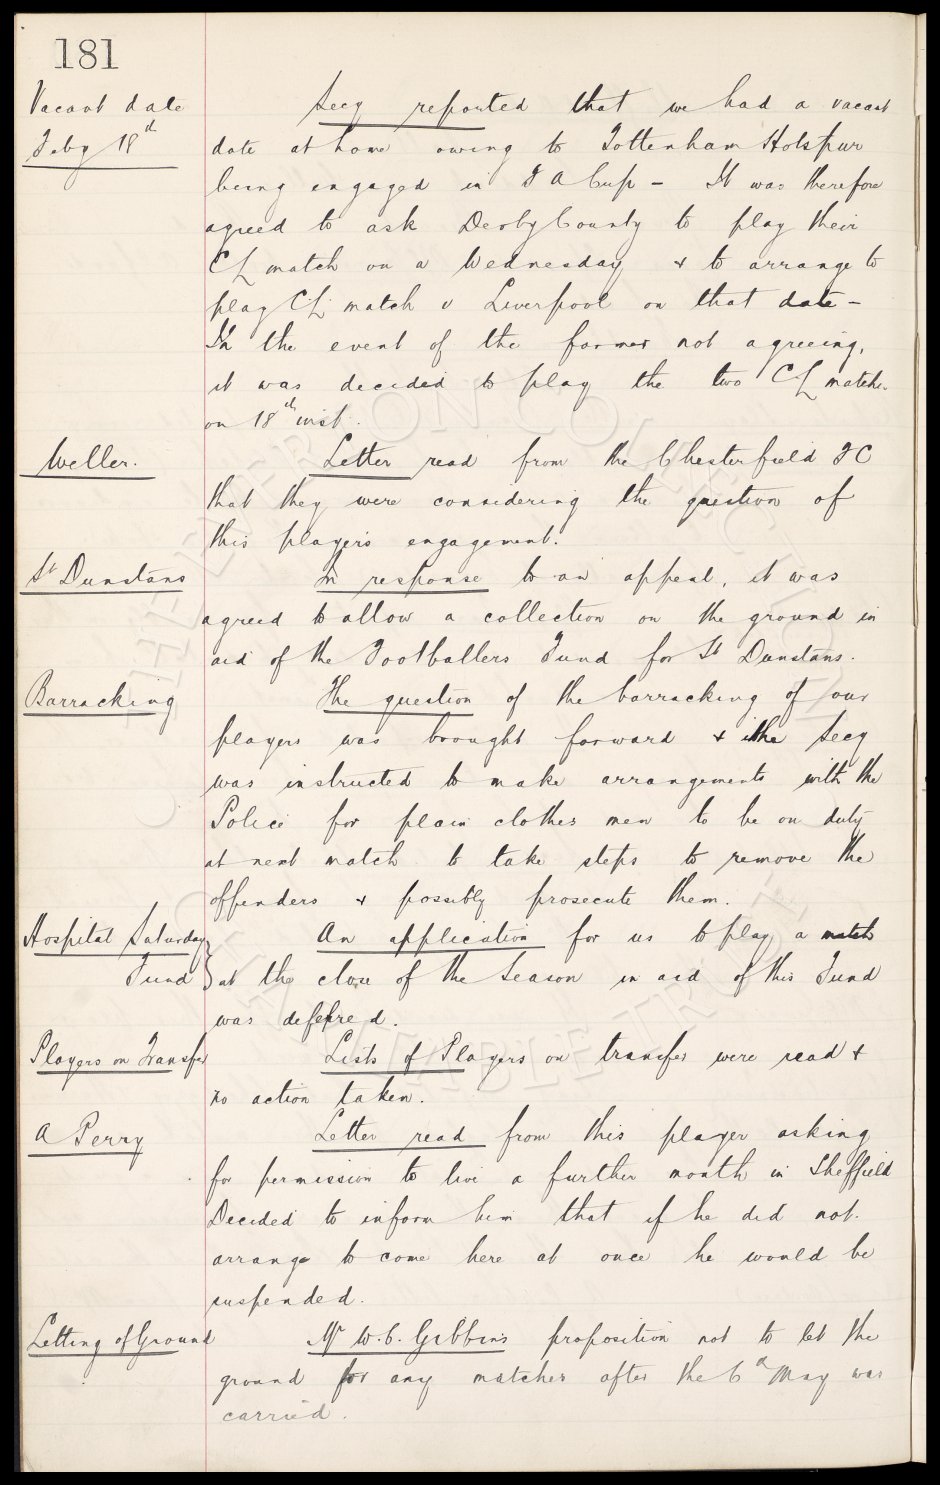 181
Vacant date
Feby 18th
Secy reported that we had a vacant
date at home owing to Tottenham Hotspur
being engaged in F A Cup – It was therefore
agreed to ask Derby County to play their
CL match on a Wednesday & to arrange to
play CL match v Liverpool on that date –
In the event of the former not agreeing,
it was decided to play the two CL matches
on 18th inst.
Weller.
Letter read from the Chesterfield FC
that they were considering the question of
this player's engagement.
St Dunstans
In response to an appeal, it was
agreed to allow a collection on the ground in
aid of the Footballers Fund for St Dunstans.
Barracking
The question of the barracking of our
players was brought forward & the Secy
was instructed to make arrangements with the
Police for plain clothes men to be on duty
at next match to take steps to remove the
offenders & possibly prosecute them.
Hospital Saturday
Fund
An application for us to play a match
at the close of the Season in aid of this Fund
was deferred.
Players on Transfer
Lists of Players on transfer were read &
no action taken.
A Perry
Letter read from this player asking
for permission to live a further month in Sheffield
Decided to inform him that if he did not
arrange to come here at once he would be
suspended.
Letting of Ground
Mr W. C. Gibbins proposition not to let the
ground for any matches after the 6th May was
carried.
THE EVERTON COLLECTION
CHARITABLE TRUST